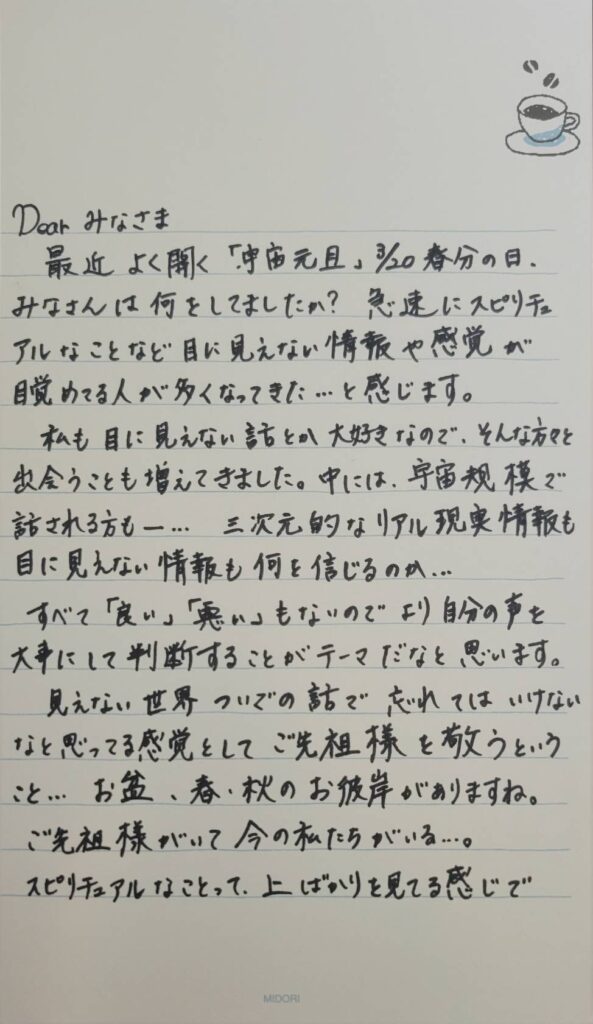 Dear みなさま
最近 よく聞く「宇宙元旦」3/20 春分の日、
みなさんは 何をしてましたか? 急速に スピリチュ
アルなことなど 目に見えない 情報や 感覚が
目覚めてる人が 多くなってきた…と 感じます。
私も 目に見えない 話とか 大好きなので、そんな方々と
出会うことも 増えてきました。中には、宇宙規模で
話される方もー… 三次元的な リアル 現実情報も
目に見えない 情報も 何を 信じるのか…
すべて「良い」「悪い」もないので より 自分の声を
大事にして 判断することがテーマだなと 思います。
見えない 世界 ついでの 話で 忘れてはいけない
なと思ってる感覚として ご先祖様 を 敬うという
こと… お盆、春・秋の お彼岸がありますね。
ご先祖様がいて 今の私たちがいる…。
スピリチュアルなことって、上ばかりを見てる感じで
MIDORI